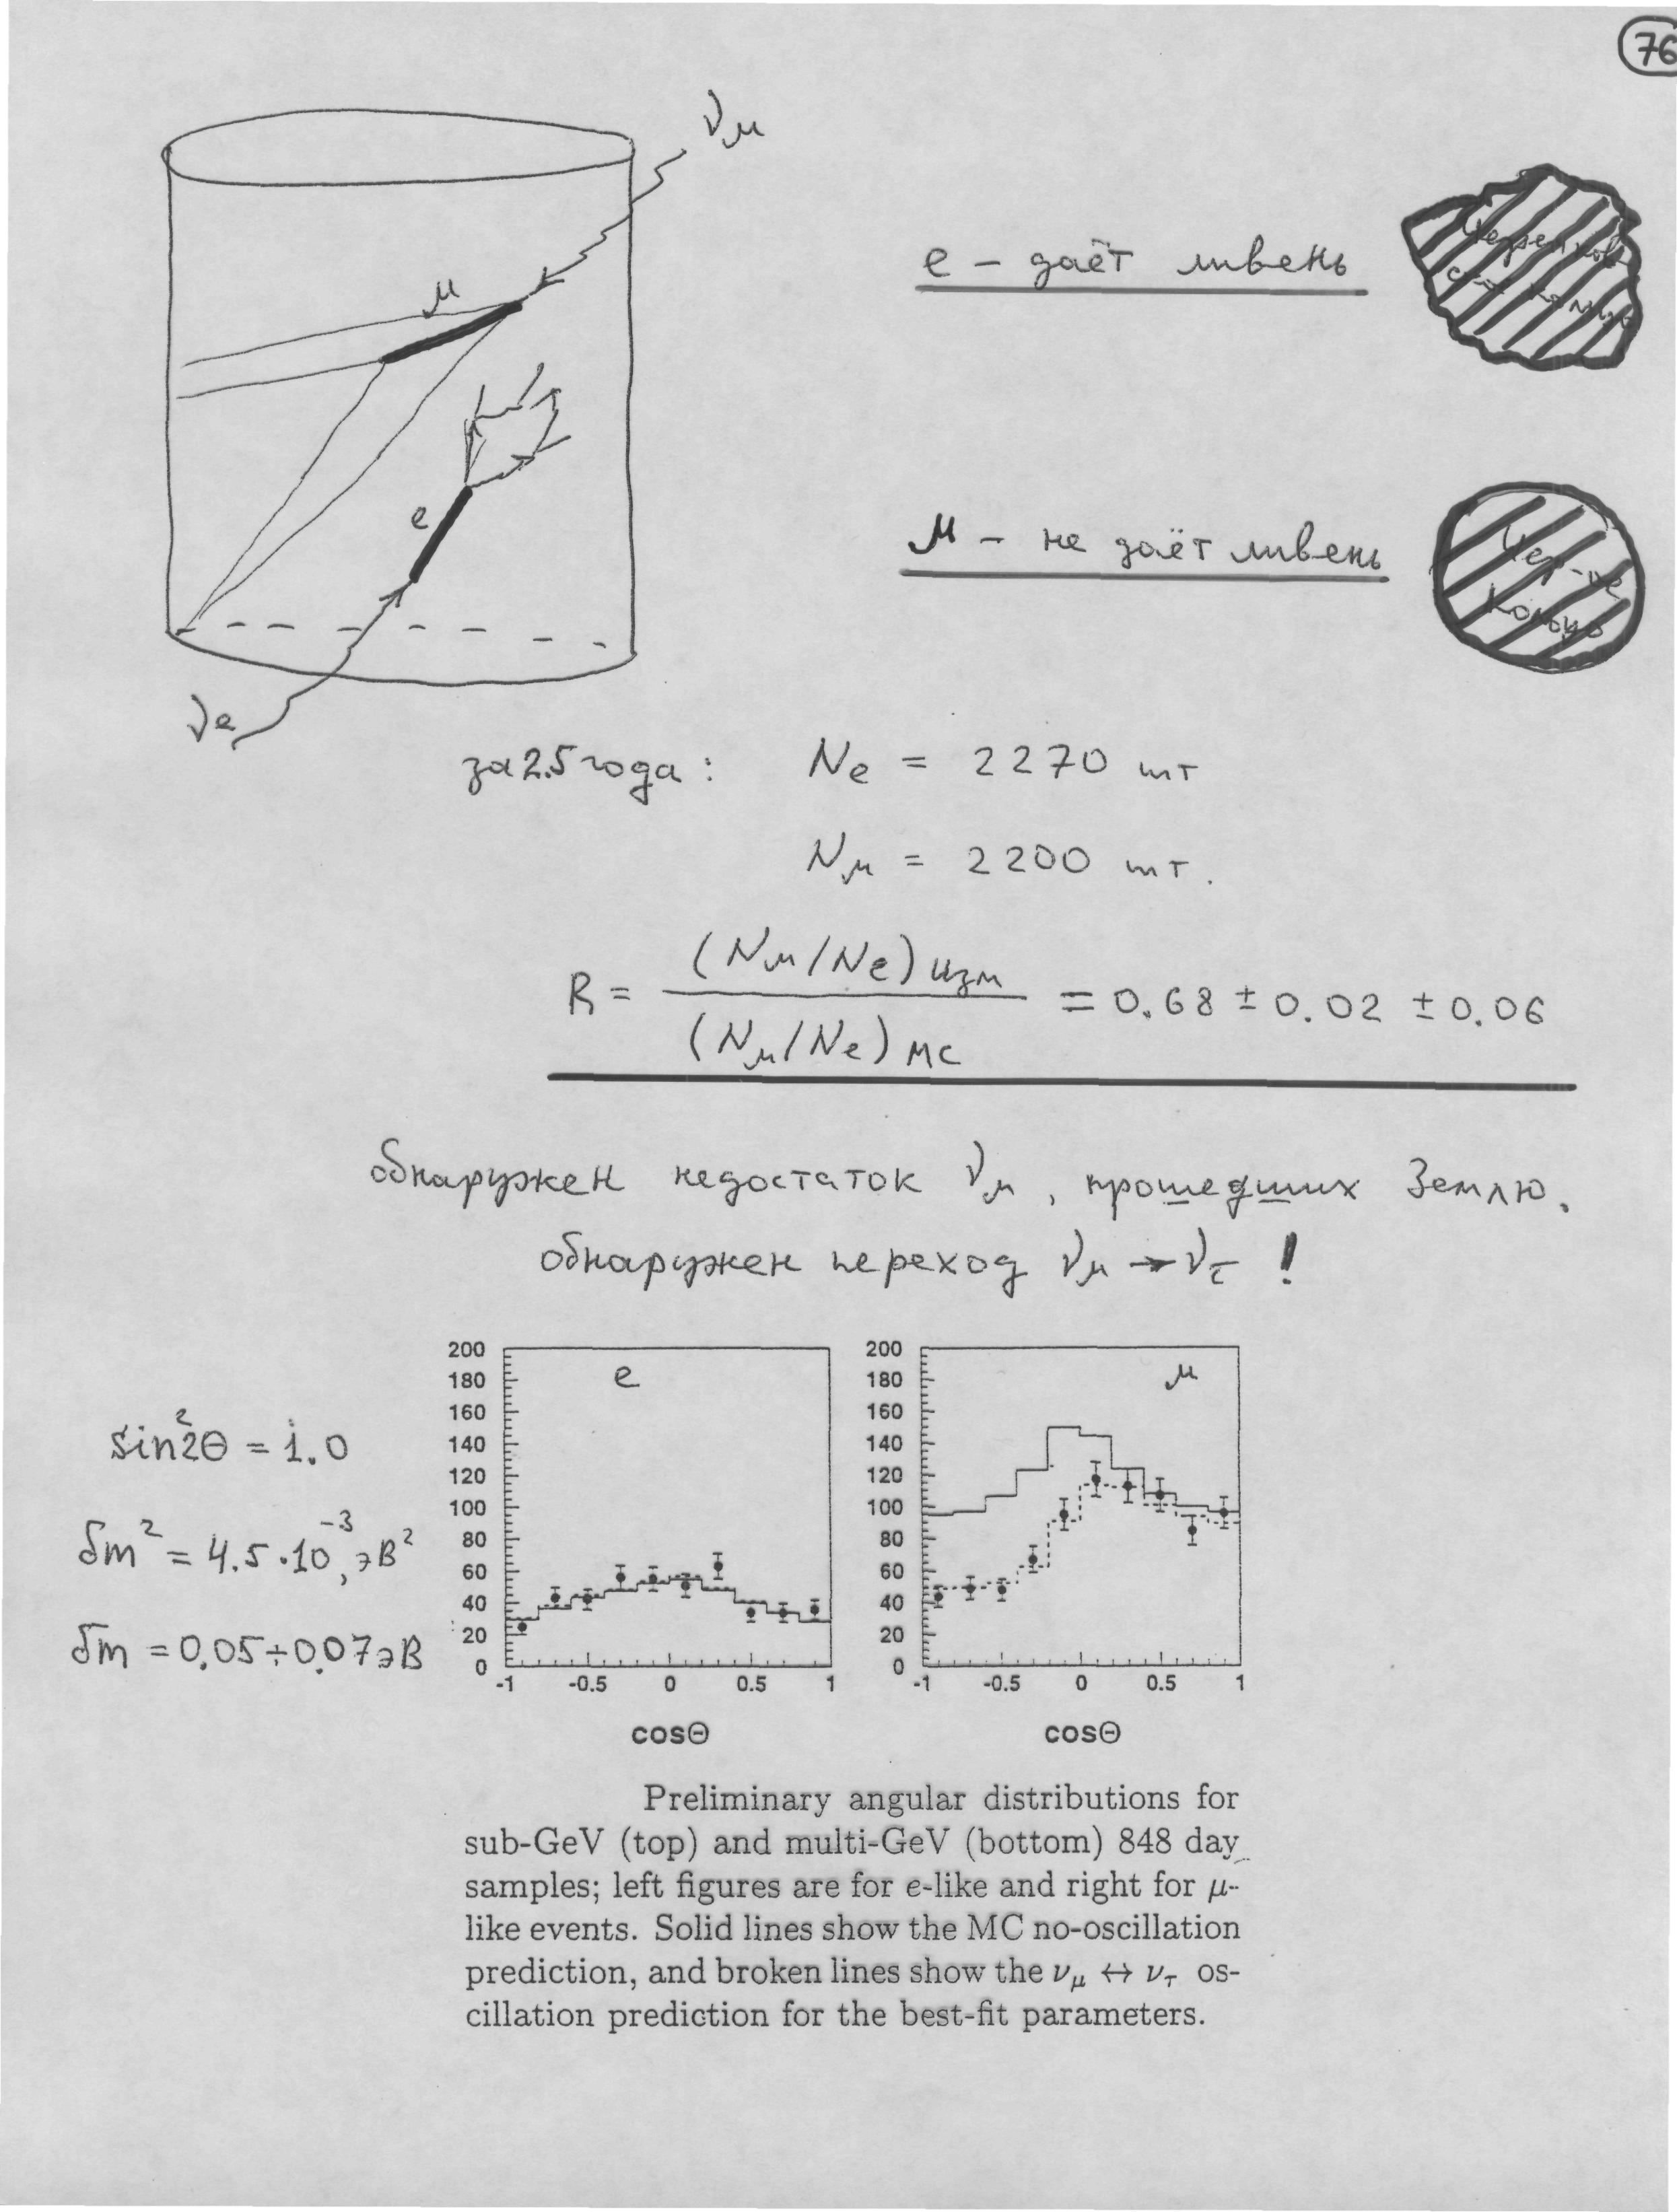 76
νμ
μ
e
νe
e – даёт ливень
Черенков
μ – не даёт ливень
Чер-ое
кольцо
за 2.5 года : Ne = 2270 шт
Nμ = 2200 шт.
R = (Nμ/Ne) изм / (Nμ/Ne) MC = 0.68 ± 0.02 ± 0.06
обнаружен недостаток νμ, прошедших Землю.
обнаружен переход νμ → ντ !
sin²2θ = 1.0
δm² = 4.5·10⁻³, эВ²
δm = 0.05÷0.07эВ
e
200
180
160
140
120
100
80
60
40
20
0
-1 -0.5 0 0.5 1
cosΘ
μ
200
180
160
140
120
100
80
60
40
20
0
-1 -0.5 0 0.5 1
cosΘ
Preliminary angular distributions for
sub-GeV (top) and multi-GeV (bottom) 848 day
samples; left figures are for e-like and right for μ-
like events. Solid lines show the MC no-oscillation
prediction, and broken lines show the νμ ↔ ντ os-
cillation prediction for the best-fit parameters.